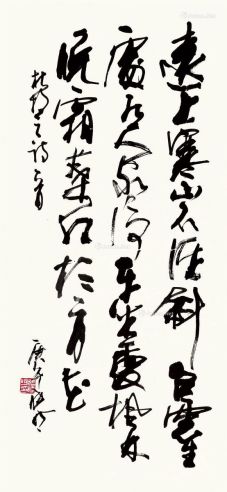 遠上寒山石径斜白雲生
處有人家停車坐愛楓林
晚霜葉红於二月花
杜牧之詩一首